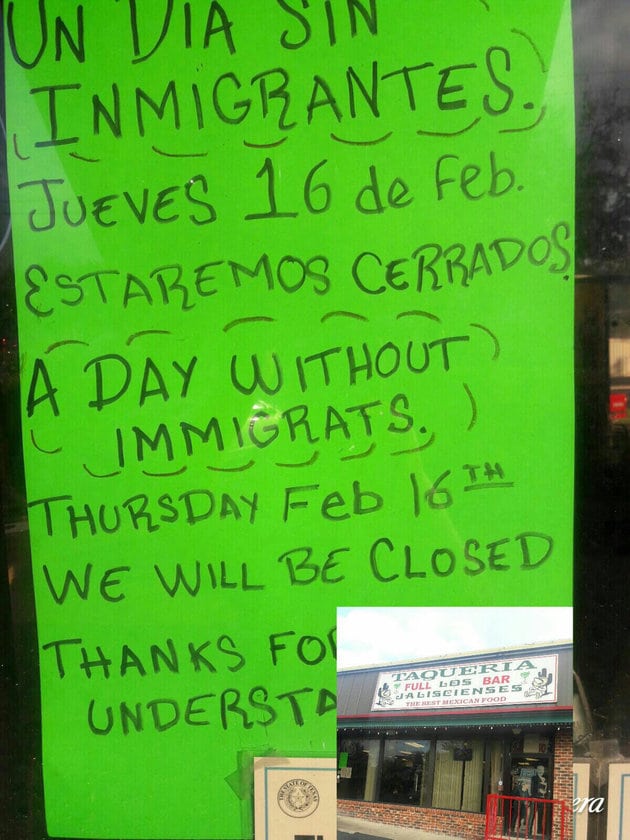 UN DIA SIN
INMIGRANTES.
JUEVES 16 de Feb.
ESTAREMOS CERRADOS
A DAY WITHOUT
IMMIGRATS.
THURSDAY Feb 16TH
WE WILL BE CLOSED
THANKS FO
UNDERSTA
TAQUERIA
FULL LOS BAR
JALISCIENSES
THE BEST MEXICAN FOOD
THE STATE OF TEXAS
era